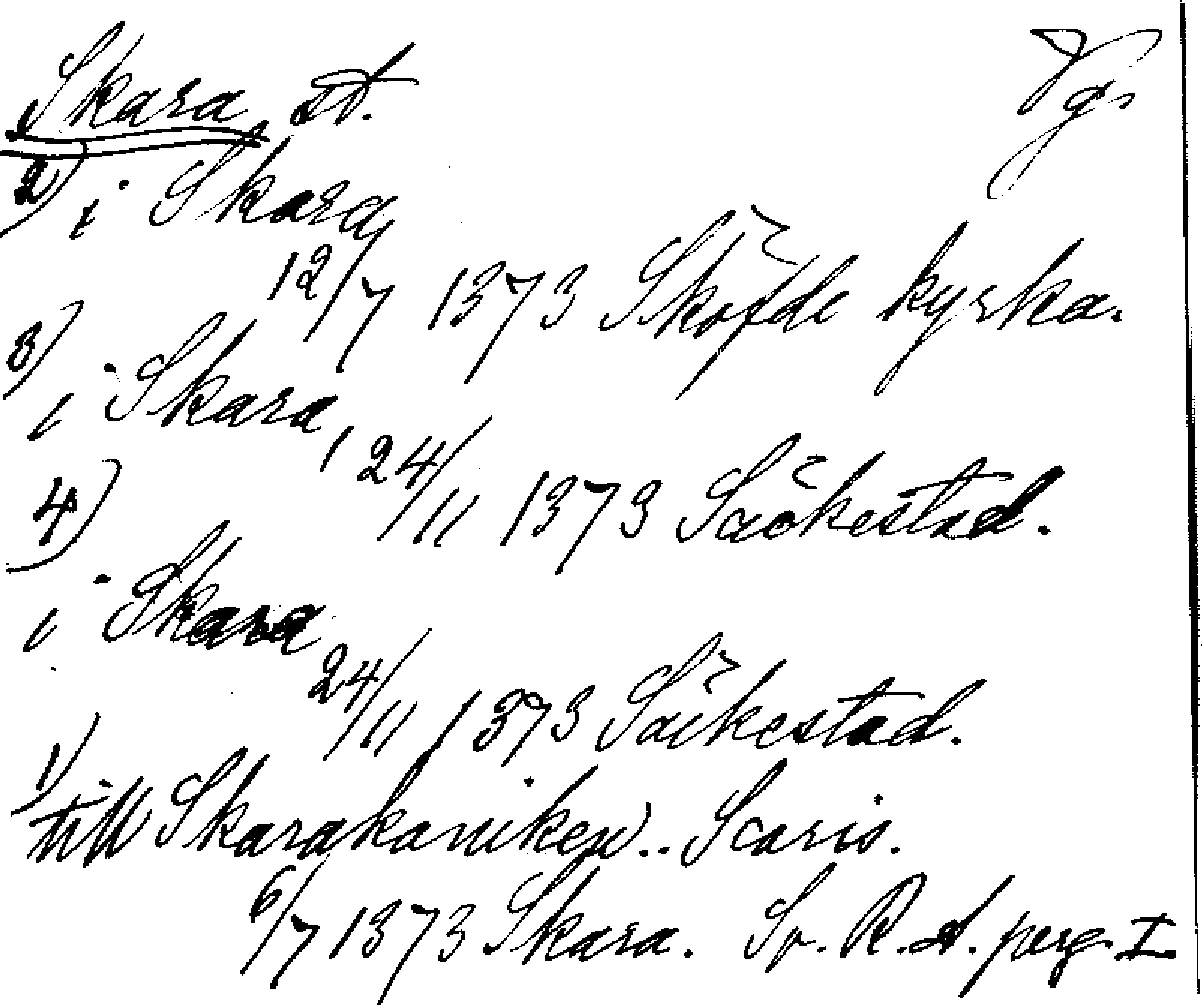 Skara st. Vg.
2) i Skara
12/7 1373 Sköfde kyrka.
3)
i Skara, 24/11 1373 Saökestad.
4)
i Skara
24/11 1373 Säckestad.
1)
till Skarakaniken.. Scaris.
6/7 1373 Skara. Sv. R. A. perg. I